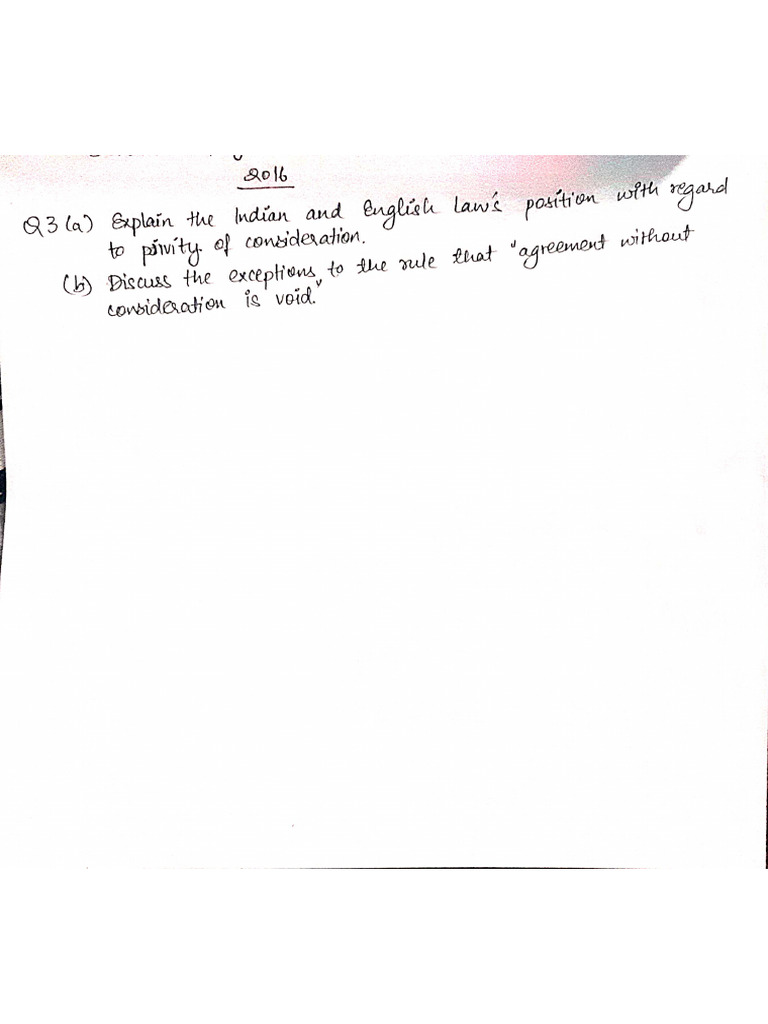 2016
Q3 (a) Explain the Indian and English Law's position with regard
to privity of consideration.
(b) Discuss the exceptions to the rule that "agreement without
consideration is void."